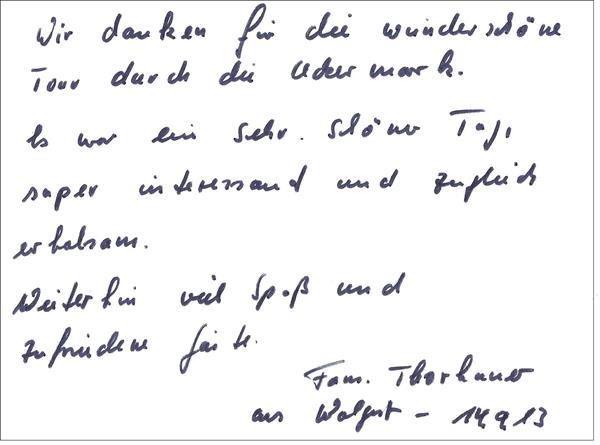 Wir danken für die wunderschöne
Tour durch die Uckermark.
Es war ein sehr schöner Tag,
super interessand und zugleich
erholsam.
Weiterhin viel Spaß und
zufriedene Gäste.
Fam. Thorhauer
aus Wolgast - 14.9.13